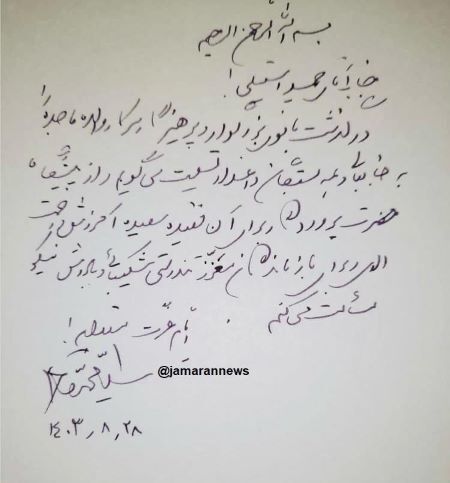 بسم الله الرحمن الرحیم
جناب آقای حمید استیلی!
درگذشت بانوی بزرگوار و پرهیزگار سرکار والده ماجده را
به جنابعالی و همه بستگان داغدار تسلیت می‌گویم و از پیشگاه
حضرت پروردگار برای آن فقیده سعیده آمرزش و رحمت
الهی و برای بازماندگان معزز تندرستی شکیبایی و پاداش نیکو
مسألت می‌کنم
ایام عزت مستدام!
سید محمد
@jamarannews
۱۴۰۳٫۸٫۲۸